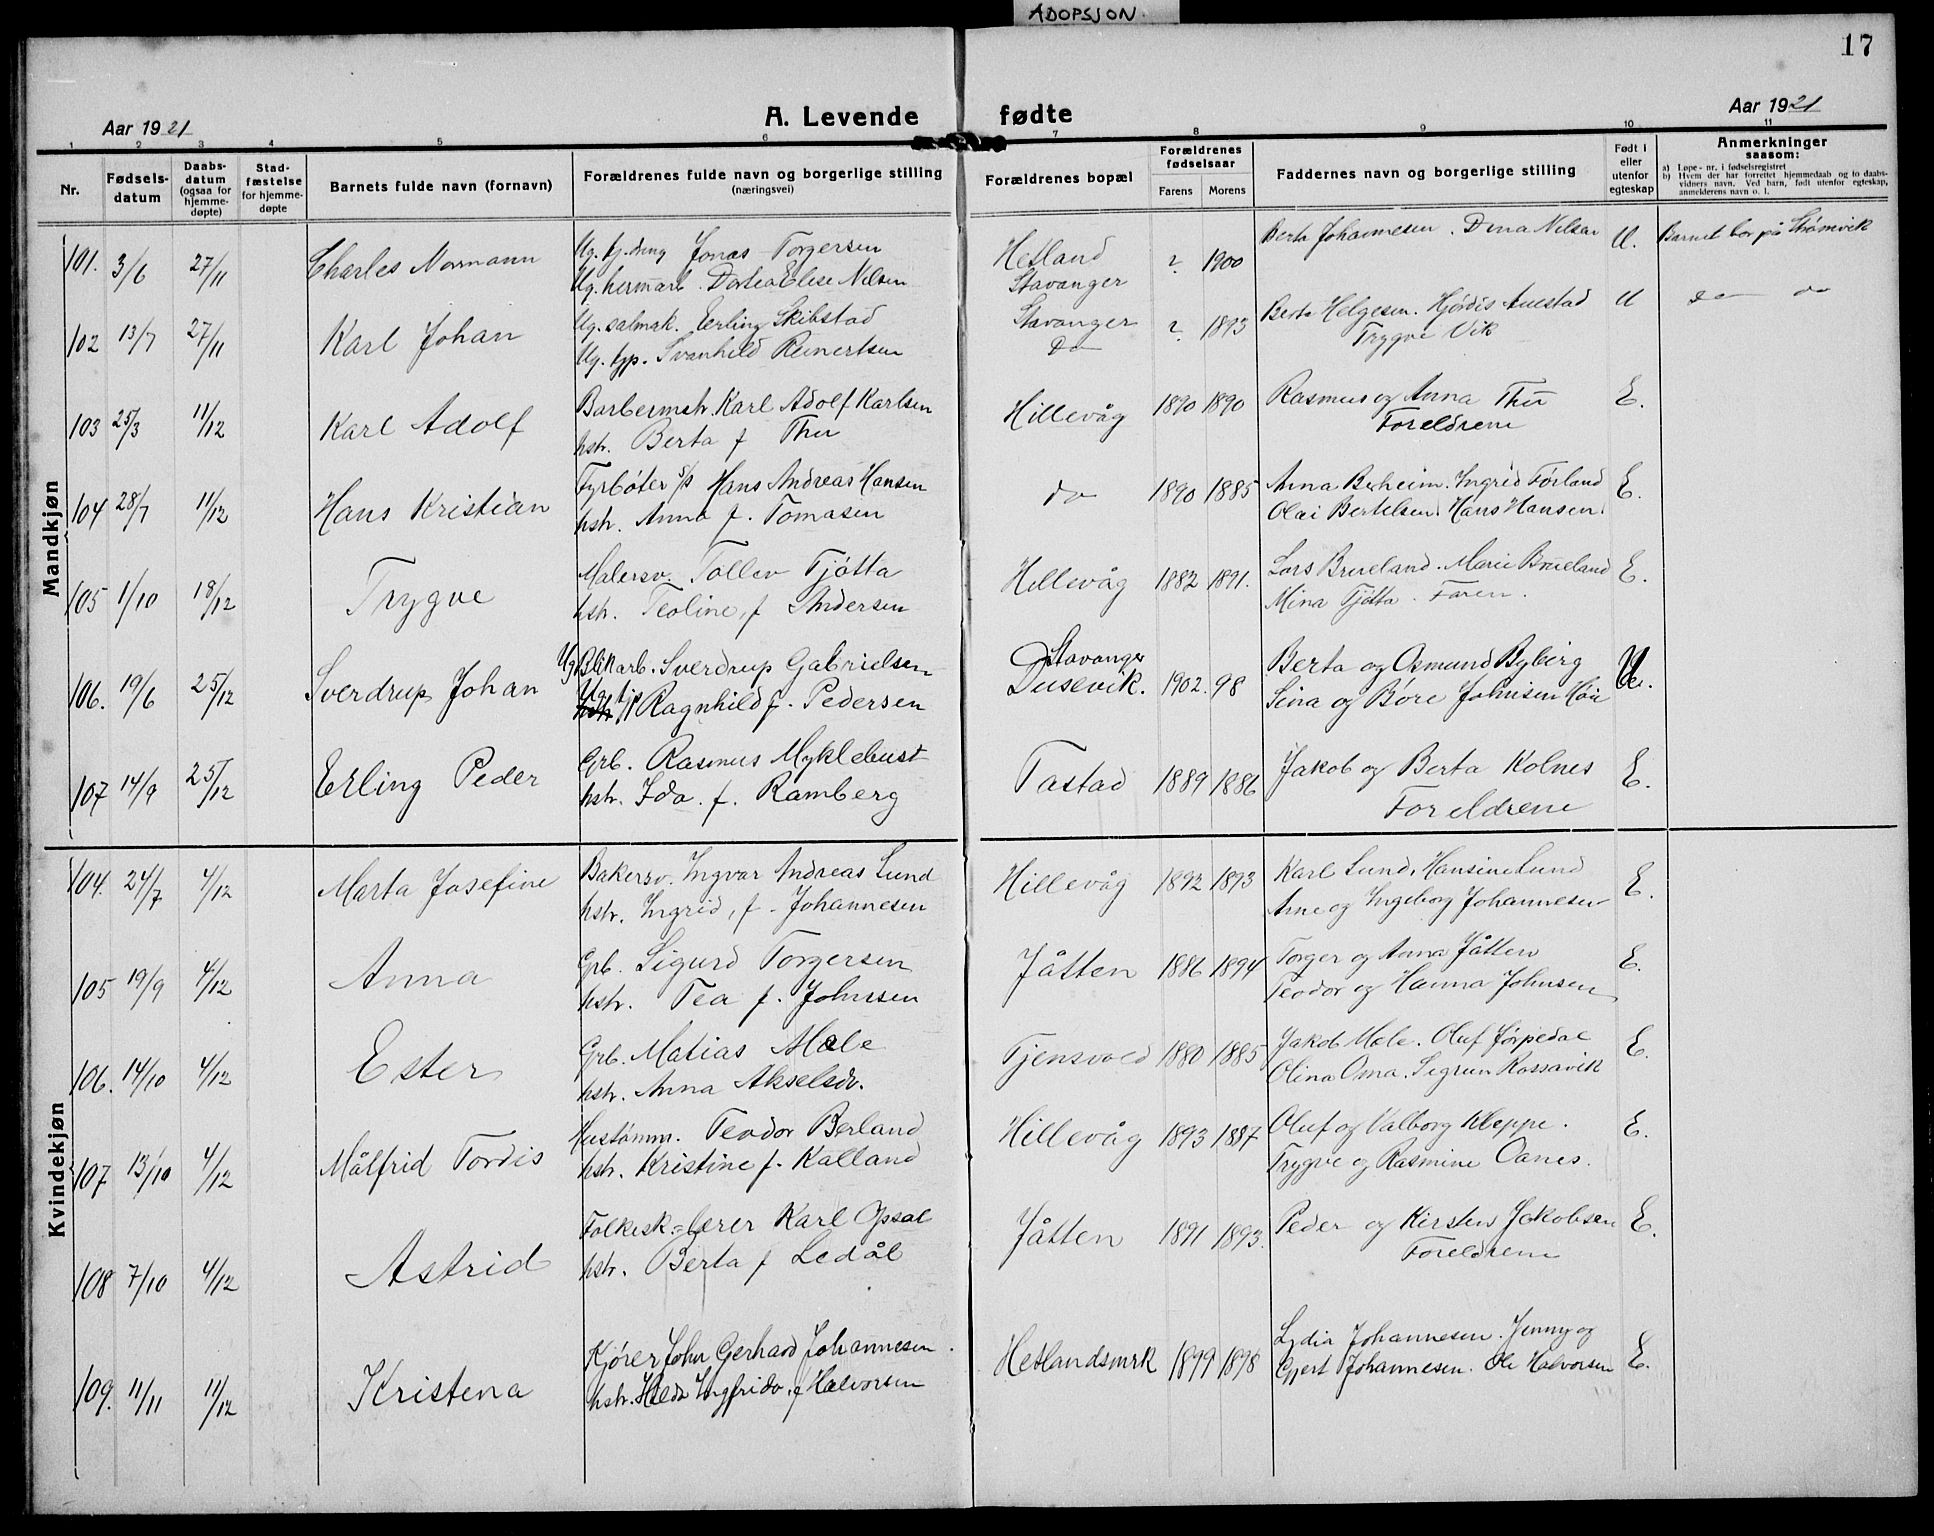 ADOPSJON.
17
A. Levende fødte
Aar 1921
Aar 1921
1 2 3 4 5 6 7 8 9 10 11
Nr.
Fødsels-datum
Daabs-datum (ogsaa for hjemme-døpte)
Stad-fæstelse for hjemme-døpte
Barnets fulde navn (fornavn)
Forældrenes fulde navn og borgerlige stilling (næringsvei)
Forældrenes bopæl
Forældrenes fødselsaar
Farens Morens
Faddernes navn og borgerlige stilling
Født i eller utenfor egteskap
Anmerkninger saasom:
a) Løpe-nr. i fødselsregistret
b) Hvem der har forrettet hjemmedaab og to daabs-vidners navn. Ved barn, født utenfor egteskap, anmelderens navn o. l.
Mandkjøn
101. 3/6 27/11 Charles Normann Ug. Jonas Torgersen Hetland ? 1900 Berta Johannesen. Dina Nilsen U. Barnet bor på Strømvik
Ug. hermarb. Dortea Elise Nilsen Stavanger
102 13/7 27/11 Karl Johan Ug. salmak. Erling Skibstad Stavanger ? 1893 Berta Helgesen. Hjørdis Auestad U do do
Ug. tjp. Svanhild Reinertsen Do Trygve Vik
103 25/3 11/12 Karl Adolf Barbermstr. Karl Adolf Karlsen Hillevåg 1890 1890 Rasmus og Anna Thu E.
hstr. Berta f Thu Foreldrene
104 28/7 11/12 Hans Kristian Fyrbøter s/s Hans Andreas Hansen do 1890 1885 Anna Ingrid Førland E.
hstr. Anna f. Tomasen Olai Bertelsen. Hans Hansen.
105 1/10 18/12 Trygve Malersv. Tollev Tjøtta Hillevåg 1882 1891. Lars Brueland. Marie Brueland E.
hstr. Teoline, f Andersen Mina Tjøtta. Faren.
106. 19/6 25/12 Sverdrup Johan Ug. Blikarb. Sverdrup Gabrielsen Stavanger 1902. 98 Berta og Osmund Byberg U.
Ug. tjp Ragnhild f. Pedersen Dusevik. Sina og Børe Johnsen
107 14/9 25/12 Erling Peder Grb. Rasmus Myklebust Tastad 1889 1886 Jakob og Berta Kolnes E.
hstr. Ida. f. Ramberg Foreldrene
Kvindekjøn
104. 24/7 4/12 Marta Josefine Bakersv. Ingvar Andreas Lund Hillevåg 1892 1893 Karl Lund. Hansine Lund E.
hstr. Ingrid, f. Johannesen Arne og Ingeborg Johannesen
105 19/9 4/12 Anna Grb. Sigurd Torgersen Jåtten 1886 1894 Torger og Anna Jåtten E.
hstr. Tea f. Johnsen Teodor og Hanna Johnsen
106. 14/10 4/12 Ester Grb. Matias Mæle Tjensvold 1880 1885 Jakob Mæle. Oluf Jørpedal E.
hstr. Anna Akselsdr. Olina Oma. Sigrun Rossavik
107 13/10 4/12 Målfrid Tordis Hustømm. Teodor Berland Hillevåg 1893 1887 Oluf og Valborg Kleppe. E.
hstr. Kristine f. Kalland Trygve og Rasmine Oanes.
108 7/10 4/12 Astrid Folkesk.=lærer Karl Opsal Jåtten 1891 1893. Peder og Kirsten Jakobsen E.
hstr. Berta f Ledål Foreldrene
109. 11/11 11/12 Kristena Kjører John Gerhard Johannesen. Hetlandsmrk 1899 1898 Lydia Johannesen. Jenny og E.
hstr. Hilda Ingfrida, f Halvorsen Gjert Johannesen. Ole Halvorsen